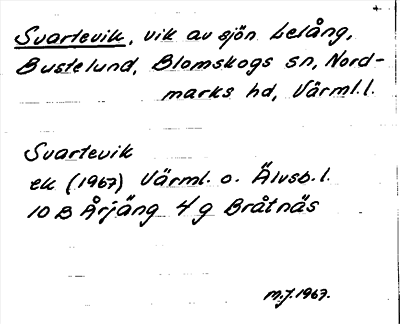 Svartevik, vik av sjön Lelång,
Bustelund, Blomskogs sn, Nord-
marks hd, Värml.l.
Svartevik
ek (1967) Värml. o. Älvsb.l.
10 B Årjäng 4 g Bråtnäs
M.J. 1967.